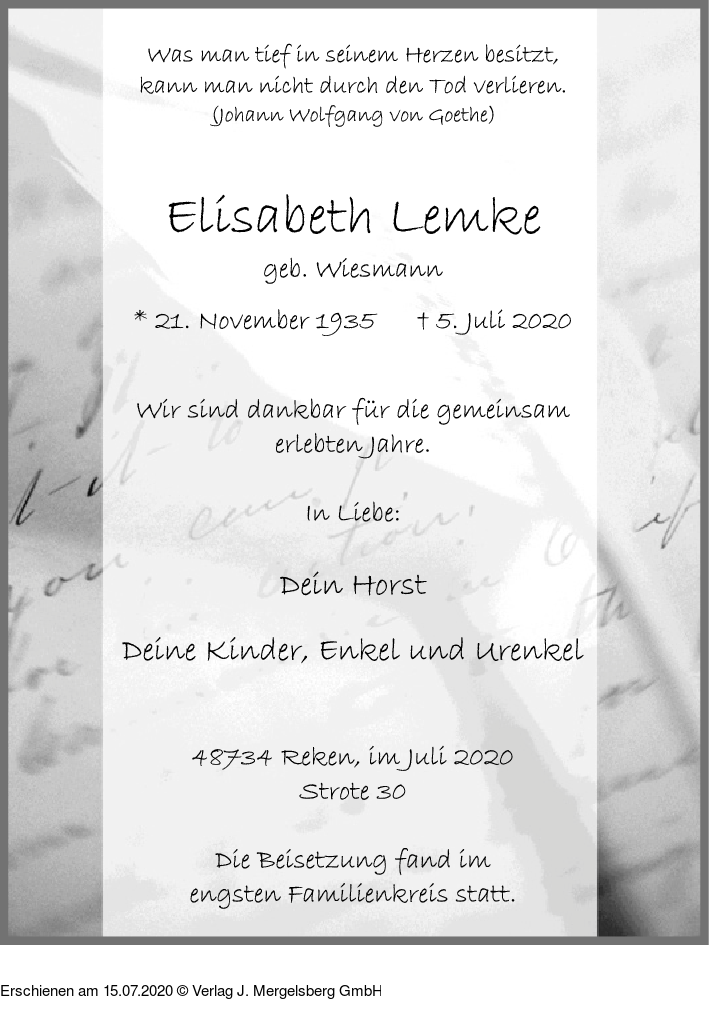 Was man tief in seinem Herzen besitzt,
kann man nicht durch den Tod verlieren.
(Johann Wolfgang von Goethe)
Elisabeth Lemke
geb. Wiesmann
* 21. November 1935 † 5. Juli 2020
Wir sind dankbar für die gemeinsam
erlebten Jahre.
In Liebe:
Dein Horst
Deine Kinder, Enkel und Urenkel
48734 Reken, im Juli 2020
Strote 30
Die Beisetzung fand im
engsten Familienkreis statt.
Erschienen am 15.07.2020 © Verlag J. Mergelsberg GmbH